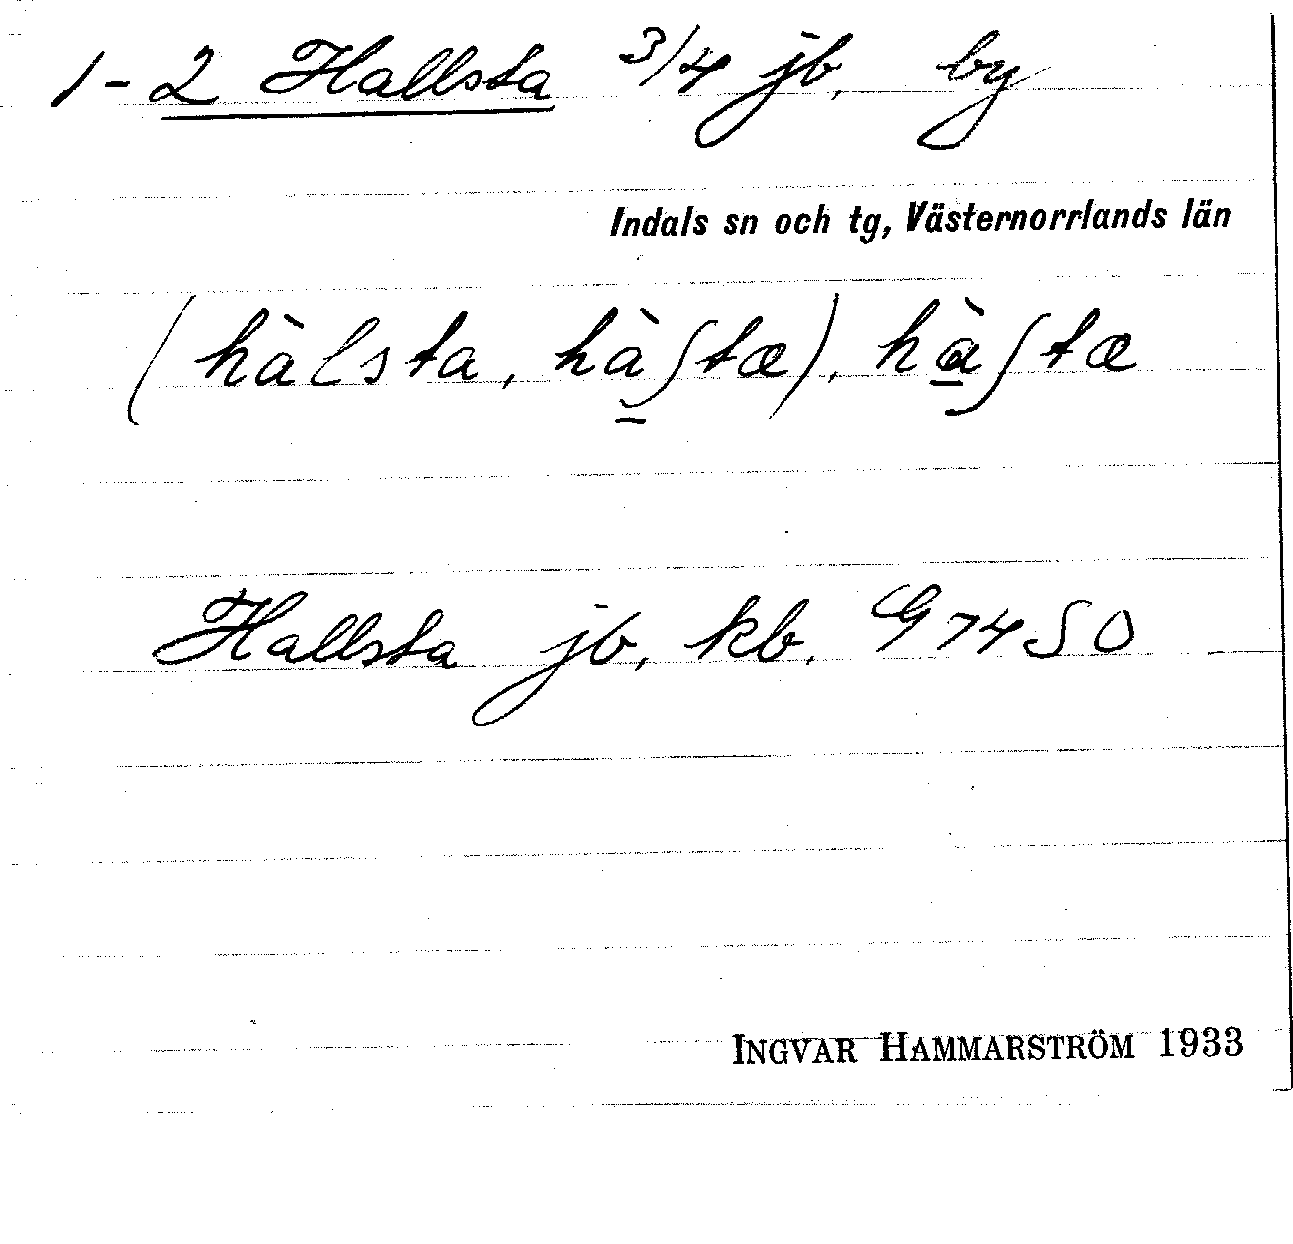 1-2 Hallsta 3/4 jb, by
Indals sn och tg, Västernorrlands län
(hàlsta, hàʃtæ), hàʃtæ
Hallsta jb, kb. G 74 SO
INGVAR HAMMARSTRÖM 1933